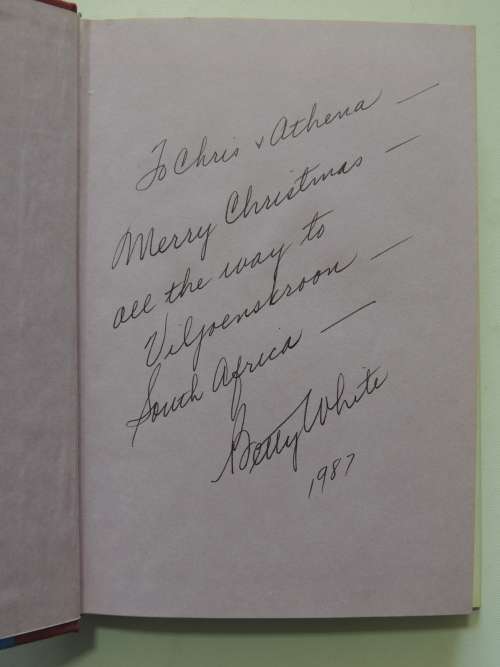 To Chris & Athena —
Merry Christmas —
all the way to
Viljoenskroon —
South Africa —
Betty White
1987